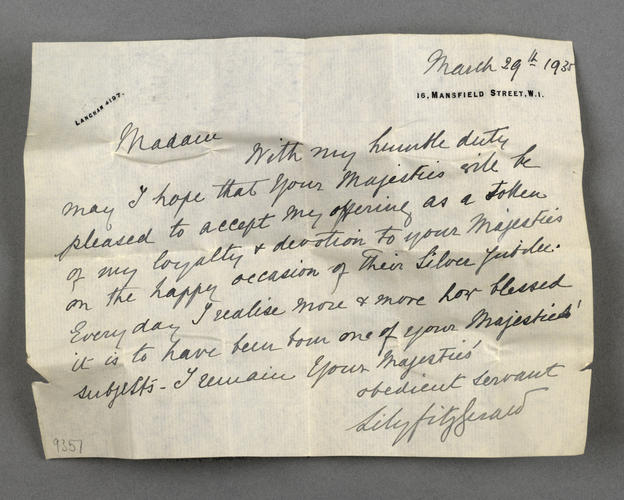 March 29th 1935
LANGHAM 4197.
16, MANSFIELD STREET, W.1.
Madam With my humble duty
may I hope that Your Majesties will be
pleased to accept my offering as a token
of my loyalty & devotion to your Majesties
on the happy occasion of Their Silver Jubilee.
Every day I realise more & more how blessed
it is to have been born one of your Majesties'
subjects - I remain Your Majesties'
obedient servant
Lily Fitzgerald
9357